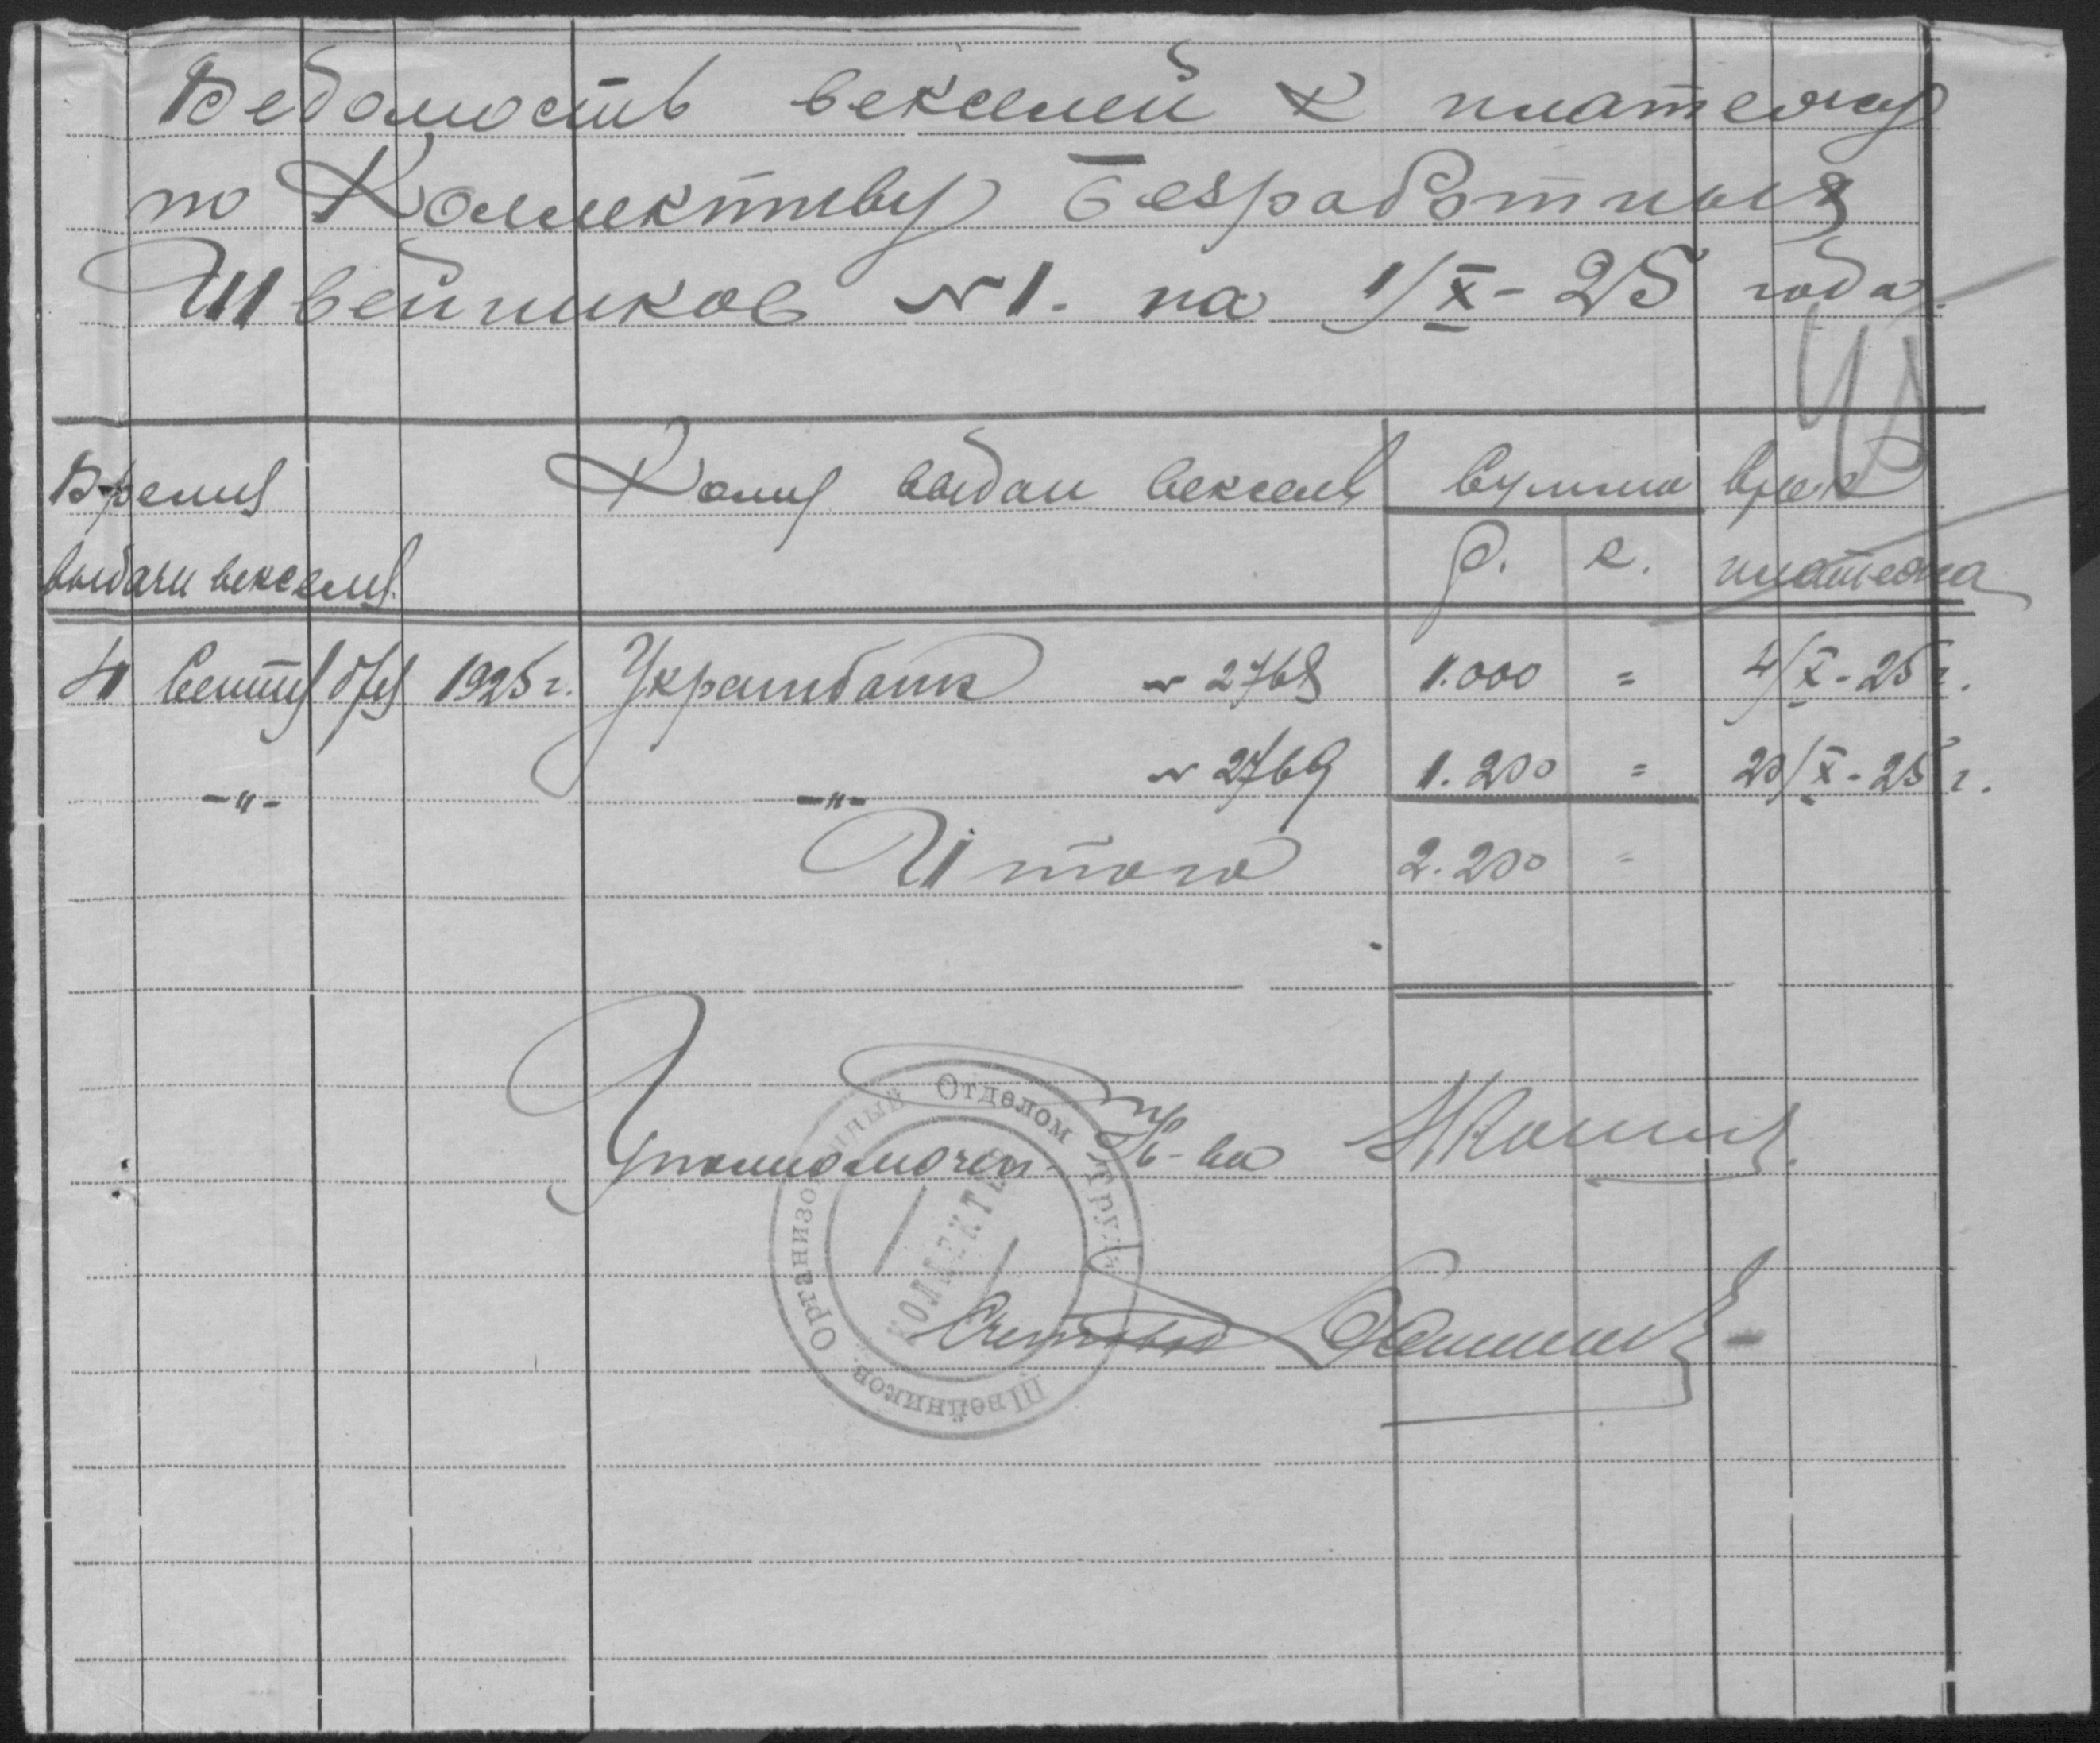 Ведомость векселей к платежу
по Коллективу Безработных
Швейников № 1. на 1/X - 25 года.
Время выдачи векселя.
Кому выдан вексель
Сумма
Р. К.
Срок платежа
4 Сентября 1925 г. Украинбанк № 2768 1.000 = 4/X - 25 г.
-"- -"- № 2769 1.200 = 20/X - 25 г.
Итого 2.200 =
Уполномочен. К-ва
Счетовод
Организованный Отделом Труда
КОЛЛЕКТИВ
Швейников